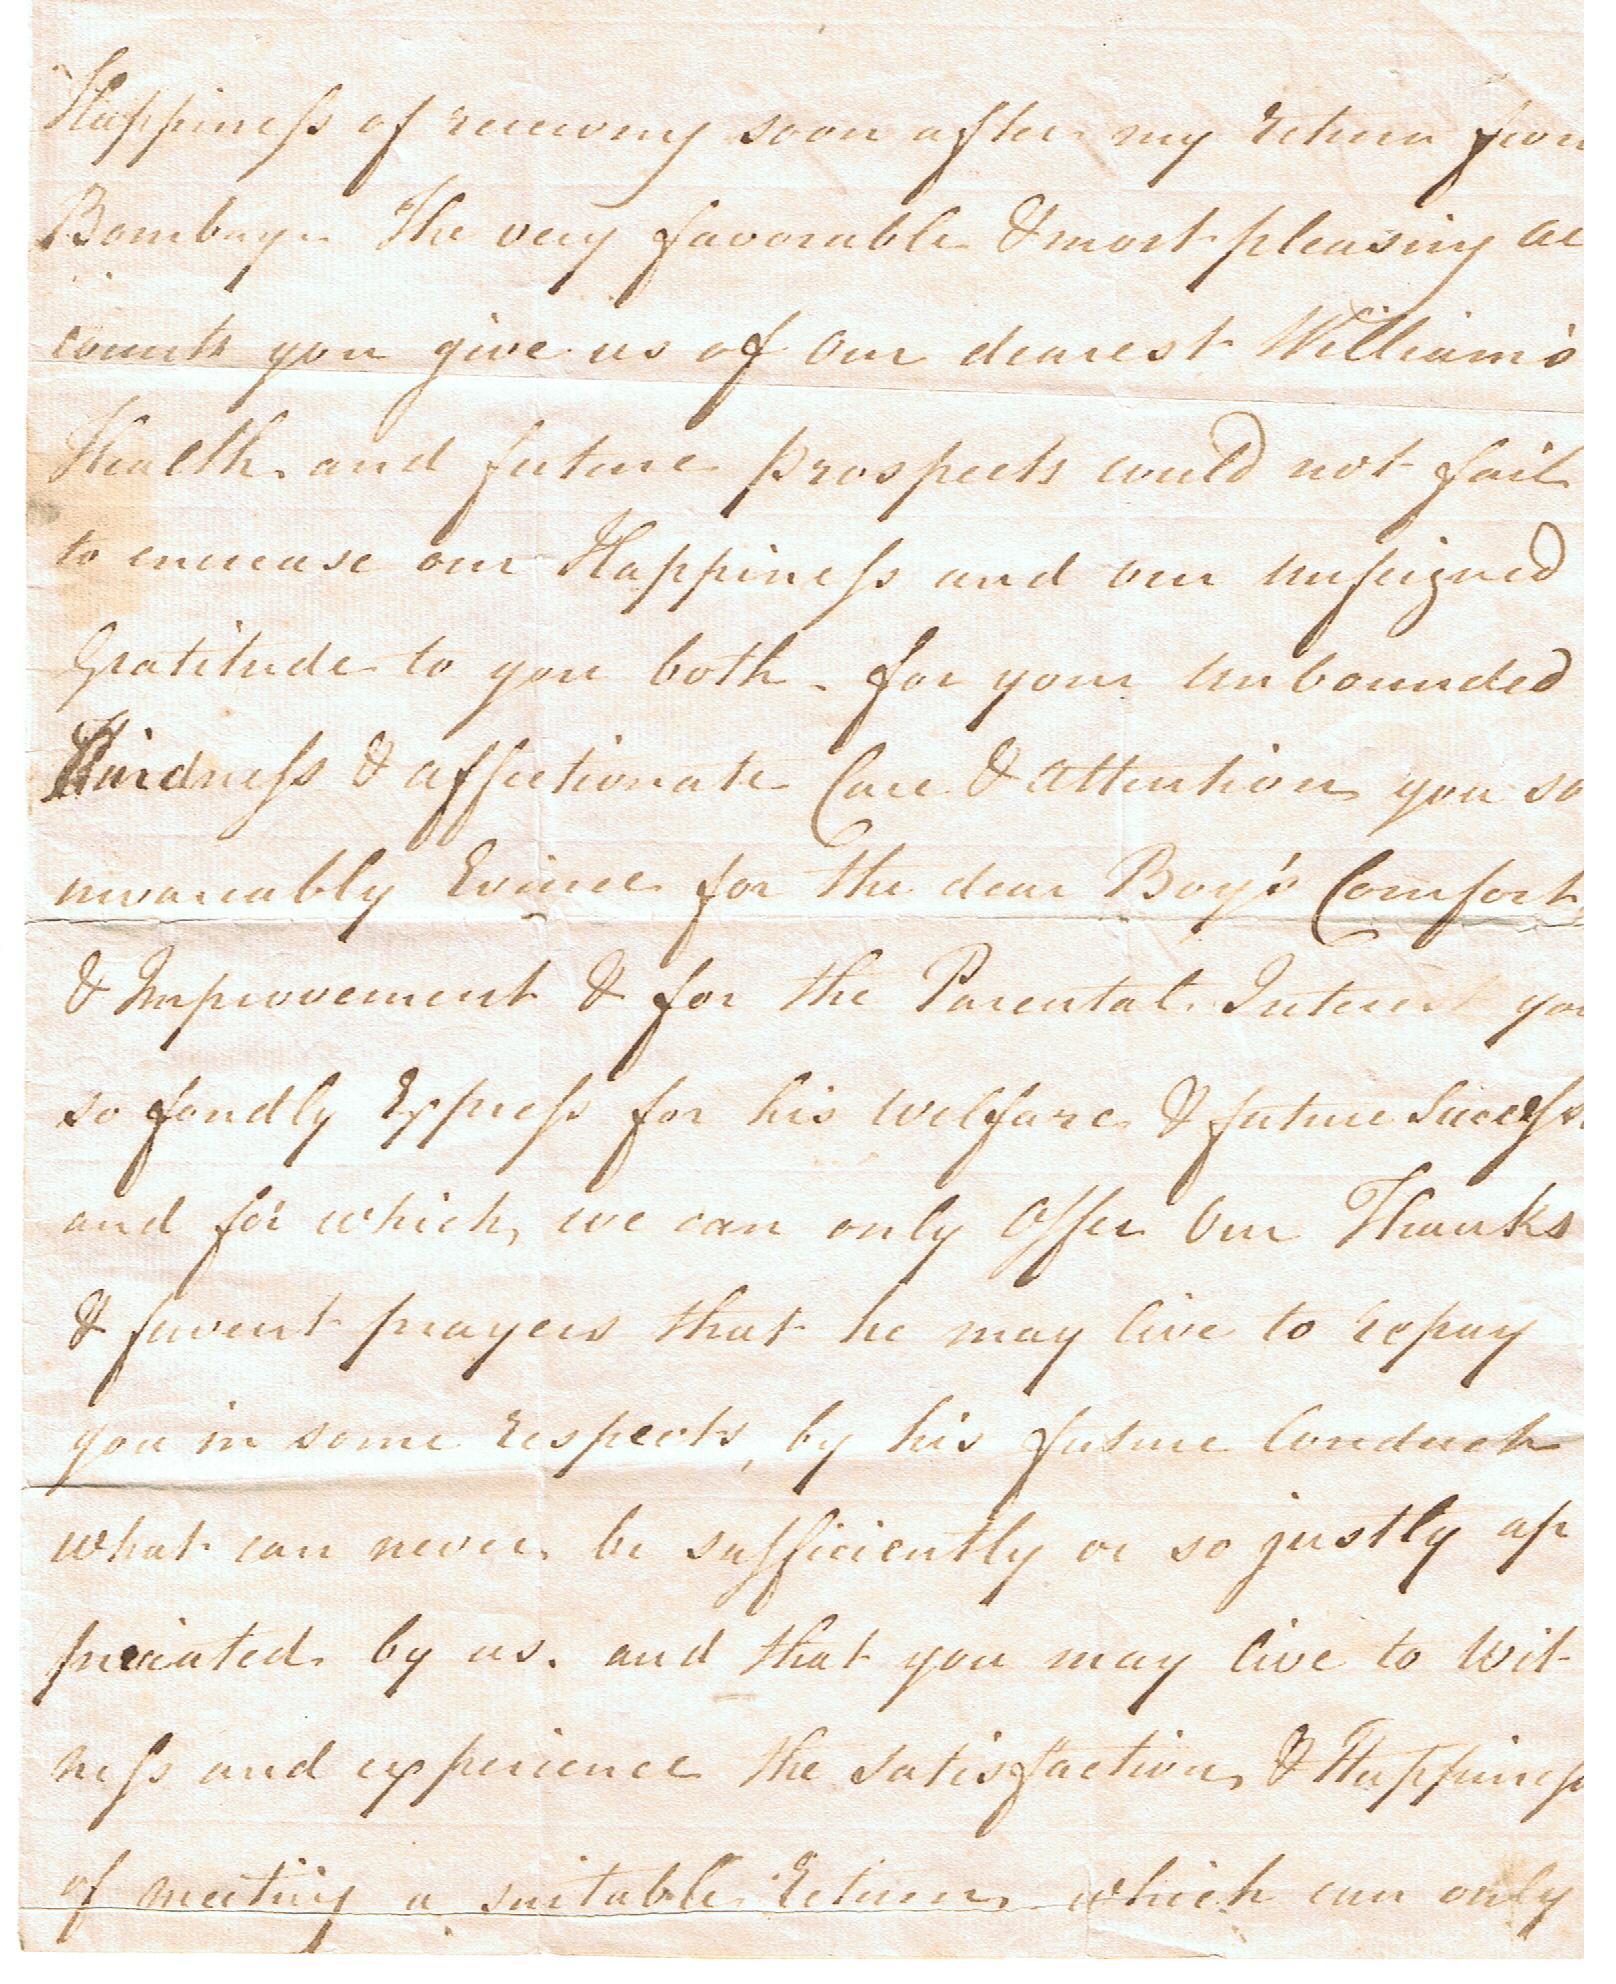 Happiness of receiving soon after my return from
Bombay. The very favorable & most pleasing ac
counts you give us of our dearest William's
Health and future prospects could not fail
to encrease our Happiness and our unfeigned
Gratitude to you both - for your unbounded
Kindness & affectionate Care & attention you so
invariably Evince for the dear Boy's Comfort
& Improvement & for the Parental Interest you
so fondly Express for his welfare & future Success
and for which, we can only Offer Our Thanks
& fervent prayers that he may live to repay
you in some respects, by his future Conduct
what can never be sufficiently or so justly ap
preciated by us. and that you may live to Wit
ness and experience the satisfaction & Happiness
of meeting a suitable Return which can only